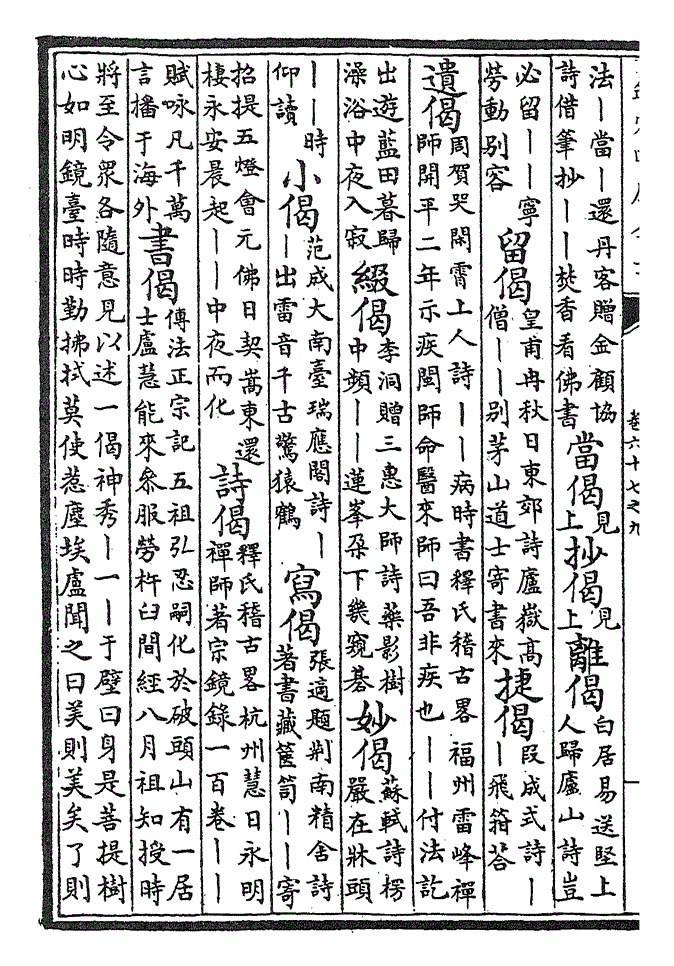 卷六十七之九
法丨當丨還丹客贈金顧協詩借筆抄丨丨焚香看佛書當偈見上抄偈見上離偈白居易送堅上人歸廬山詩豈
必留丨丨寧勞動別客留偈皇甫冉秋日東郊詩廬嶽高僧丨丨別茅山道士寄書來捷偈段成式詩丨丨飛箱荅
遺偈周賀哭閑霄上人詩丨丨病時書釋氏稽古畧福州雷峰禪師開平二年示疾閩師命醫來師曰吾非疾也丨丨付法訖
出遊藍田暮歸澡浴中夜入寂綴偈李洞贈三惠大師詩藥影樹中頻丨丨蓮峯朶下幾窺碁妙偈蘇軾詩楞嚴在牀頭
丨丨時仰讀小偈范成大南臺瑞應閣詩丨丨出雷音千古驚猿鶴寫偈張適題荆南精舍詩著書藏篋笥丨丨寄
招提五燈會元佛日契嵩東還棲永安晨起丨丨中夜而化詩偈釋氏稽古畧杭州慧日永明禪師著宗鏡錄一百卷丨丨
賦咏凡千萬言播于海外書偈傳法正宗記五祖弘忍嗣化於破頭山有一居士盧慧能來叅服勞杵臼間經八月祖知授時
將至令衆各隨意見以述一偈神秀丨一丨于壁曰身是菩提樹心如明鏡臺時時勤拂拭莫使惹塵埃盧聞之曰美則美矣了則